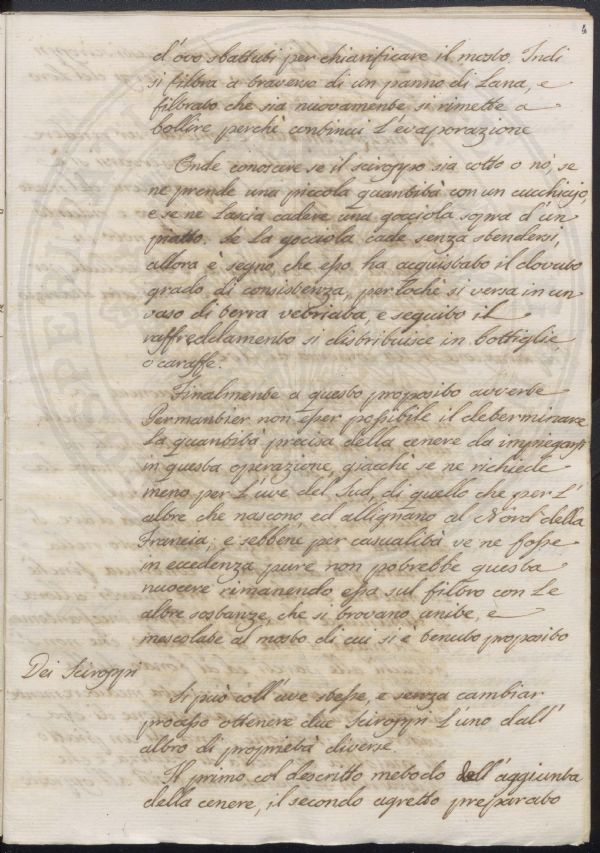 4
d'ovo sbattuti per chiarificare il mosto. Indi
si filtra a traverso di un panno di Lana, e
filtrato che sia nuovamente si rimette a
bollire perchè continui l'evaporazione
Onde conoscere se il sciroppo sia cotto o nò, se
ne prende una piccola quantità con un cucchiajo,
e se ne lascia cadere una gocciola sopra d'un
piatto. Se la gocciola cade senza stendersi,
allora è segno, che esso ha acquistato il dovuto
grado di consistenza, perlochè si versa in un
vaso di terra vetriata, e seguito il
raffreddamento si distribuisce in bottiglie
o caraffe.
Finalmente a questo proposito avverte
Permantier non esser possibile il determinare
la quantità precisa della cenere da impiegarsi
in questa operazione, giacchè se ne richiede
meno per l'uve del Sud, di quello che per l'
altre che nascono ed allignano al Nord della
Francia; e sebbene per casualità ve ne fosse
in eccedenza pure non potrebbe questa
nuocere rimanendo essa sul filtro con le
altre sostanze, che si trovano unite, e
mescolate al mosto di cui si è tenuto proposito
Dei Sciroppi
Si può coll'uve stesse, e senza cambiar
processo ottenere due Sciroppi l'uno dall'
altro di proprietà diverse.
Il primo col descritto metodo dell'aggiunta
della cenere, il secondo agretto preparato